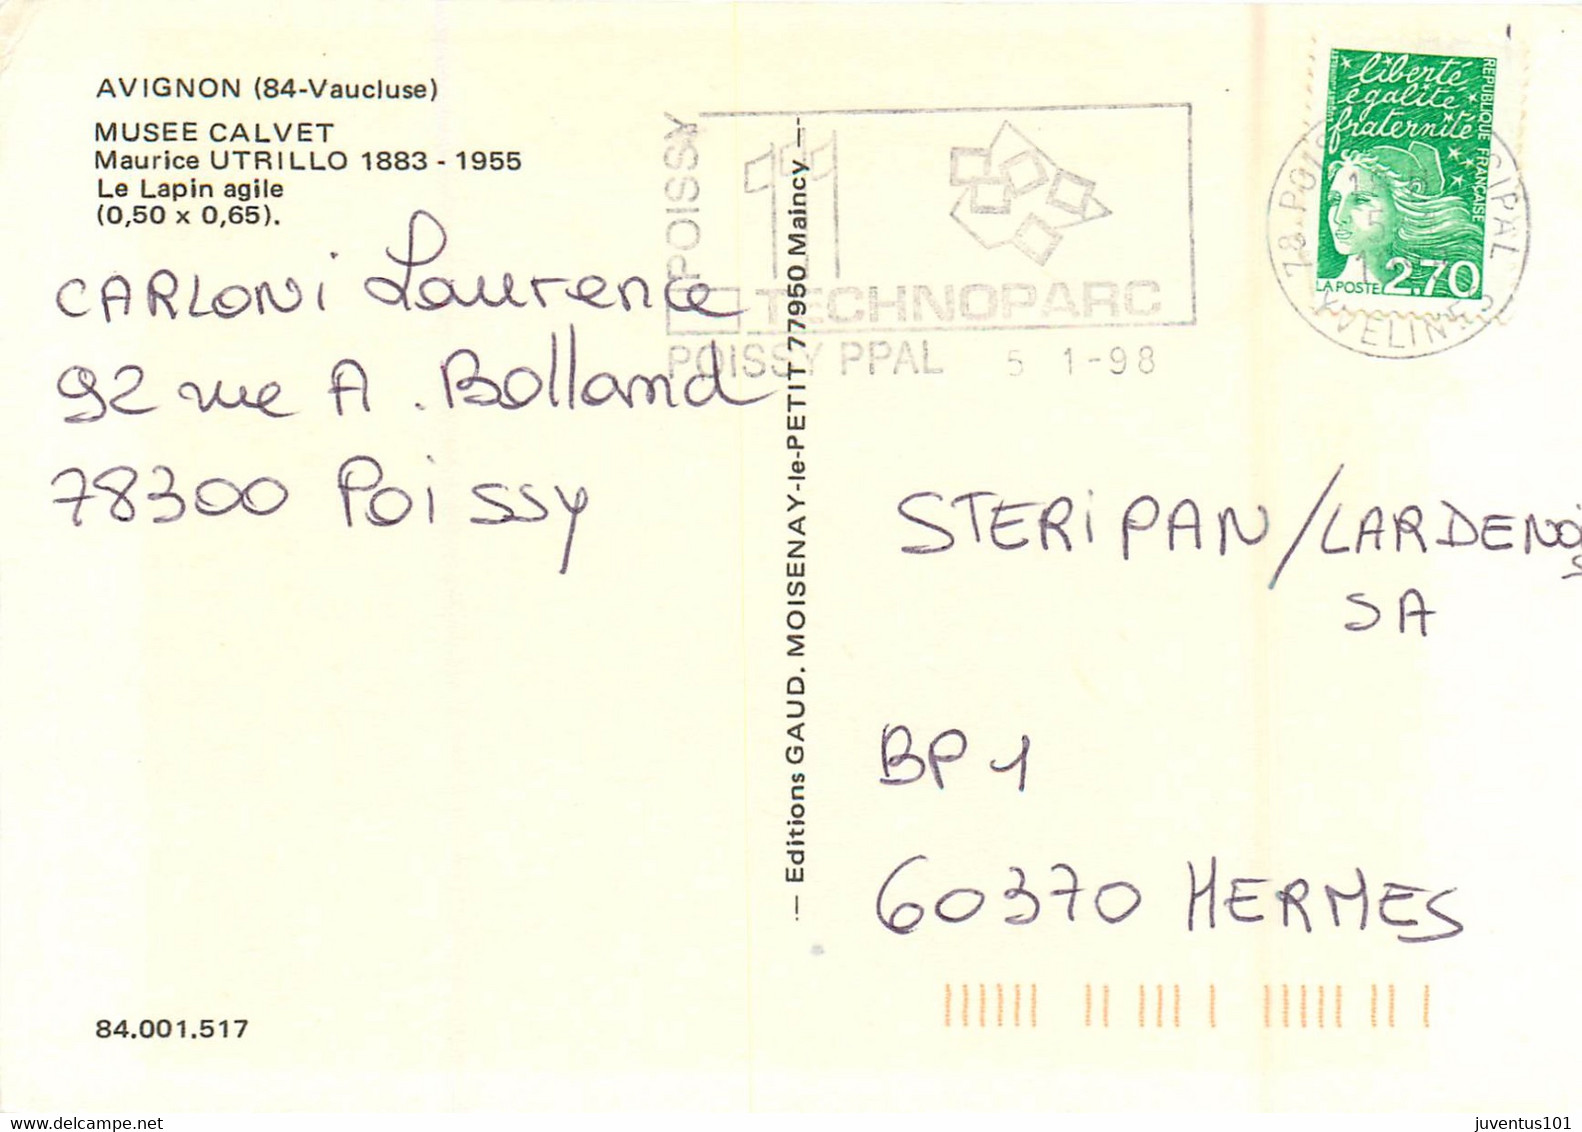 AVIGNON (84-Vaucluse)
MUSEE CALVET
Maurice UTRILLO 1883 - 1955
Le Lapin agile
(0,50 x 0,65).
CARLONI Laurence
92 rue A. Bolland
78300 Poissy
84.001.517
Editions GAUD. MOISENAY-le-PETIT 77950 Maincy
POISSY
TECHNOPARC
POISSY PPAL 5 1-98
liberté
égalité
fraternité
REPUBLIQUE FRANÇAISE
LA POSTE 2,70
YVELINES
STERIPAN/LARDENOIS
SA
BP 1
60370 HERMES
juventus101